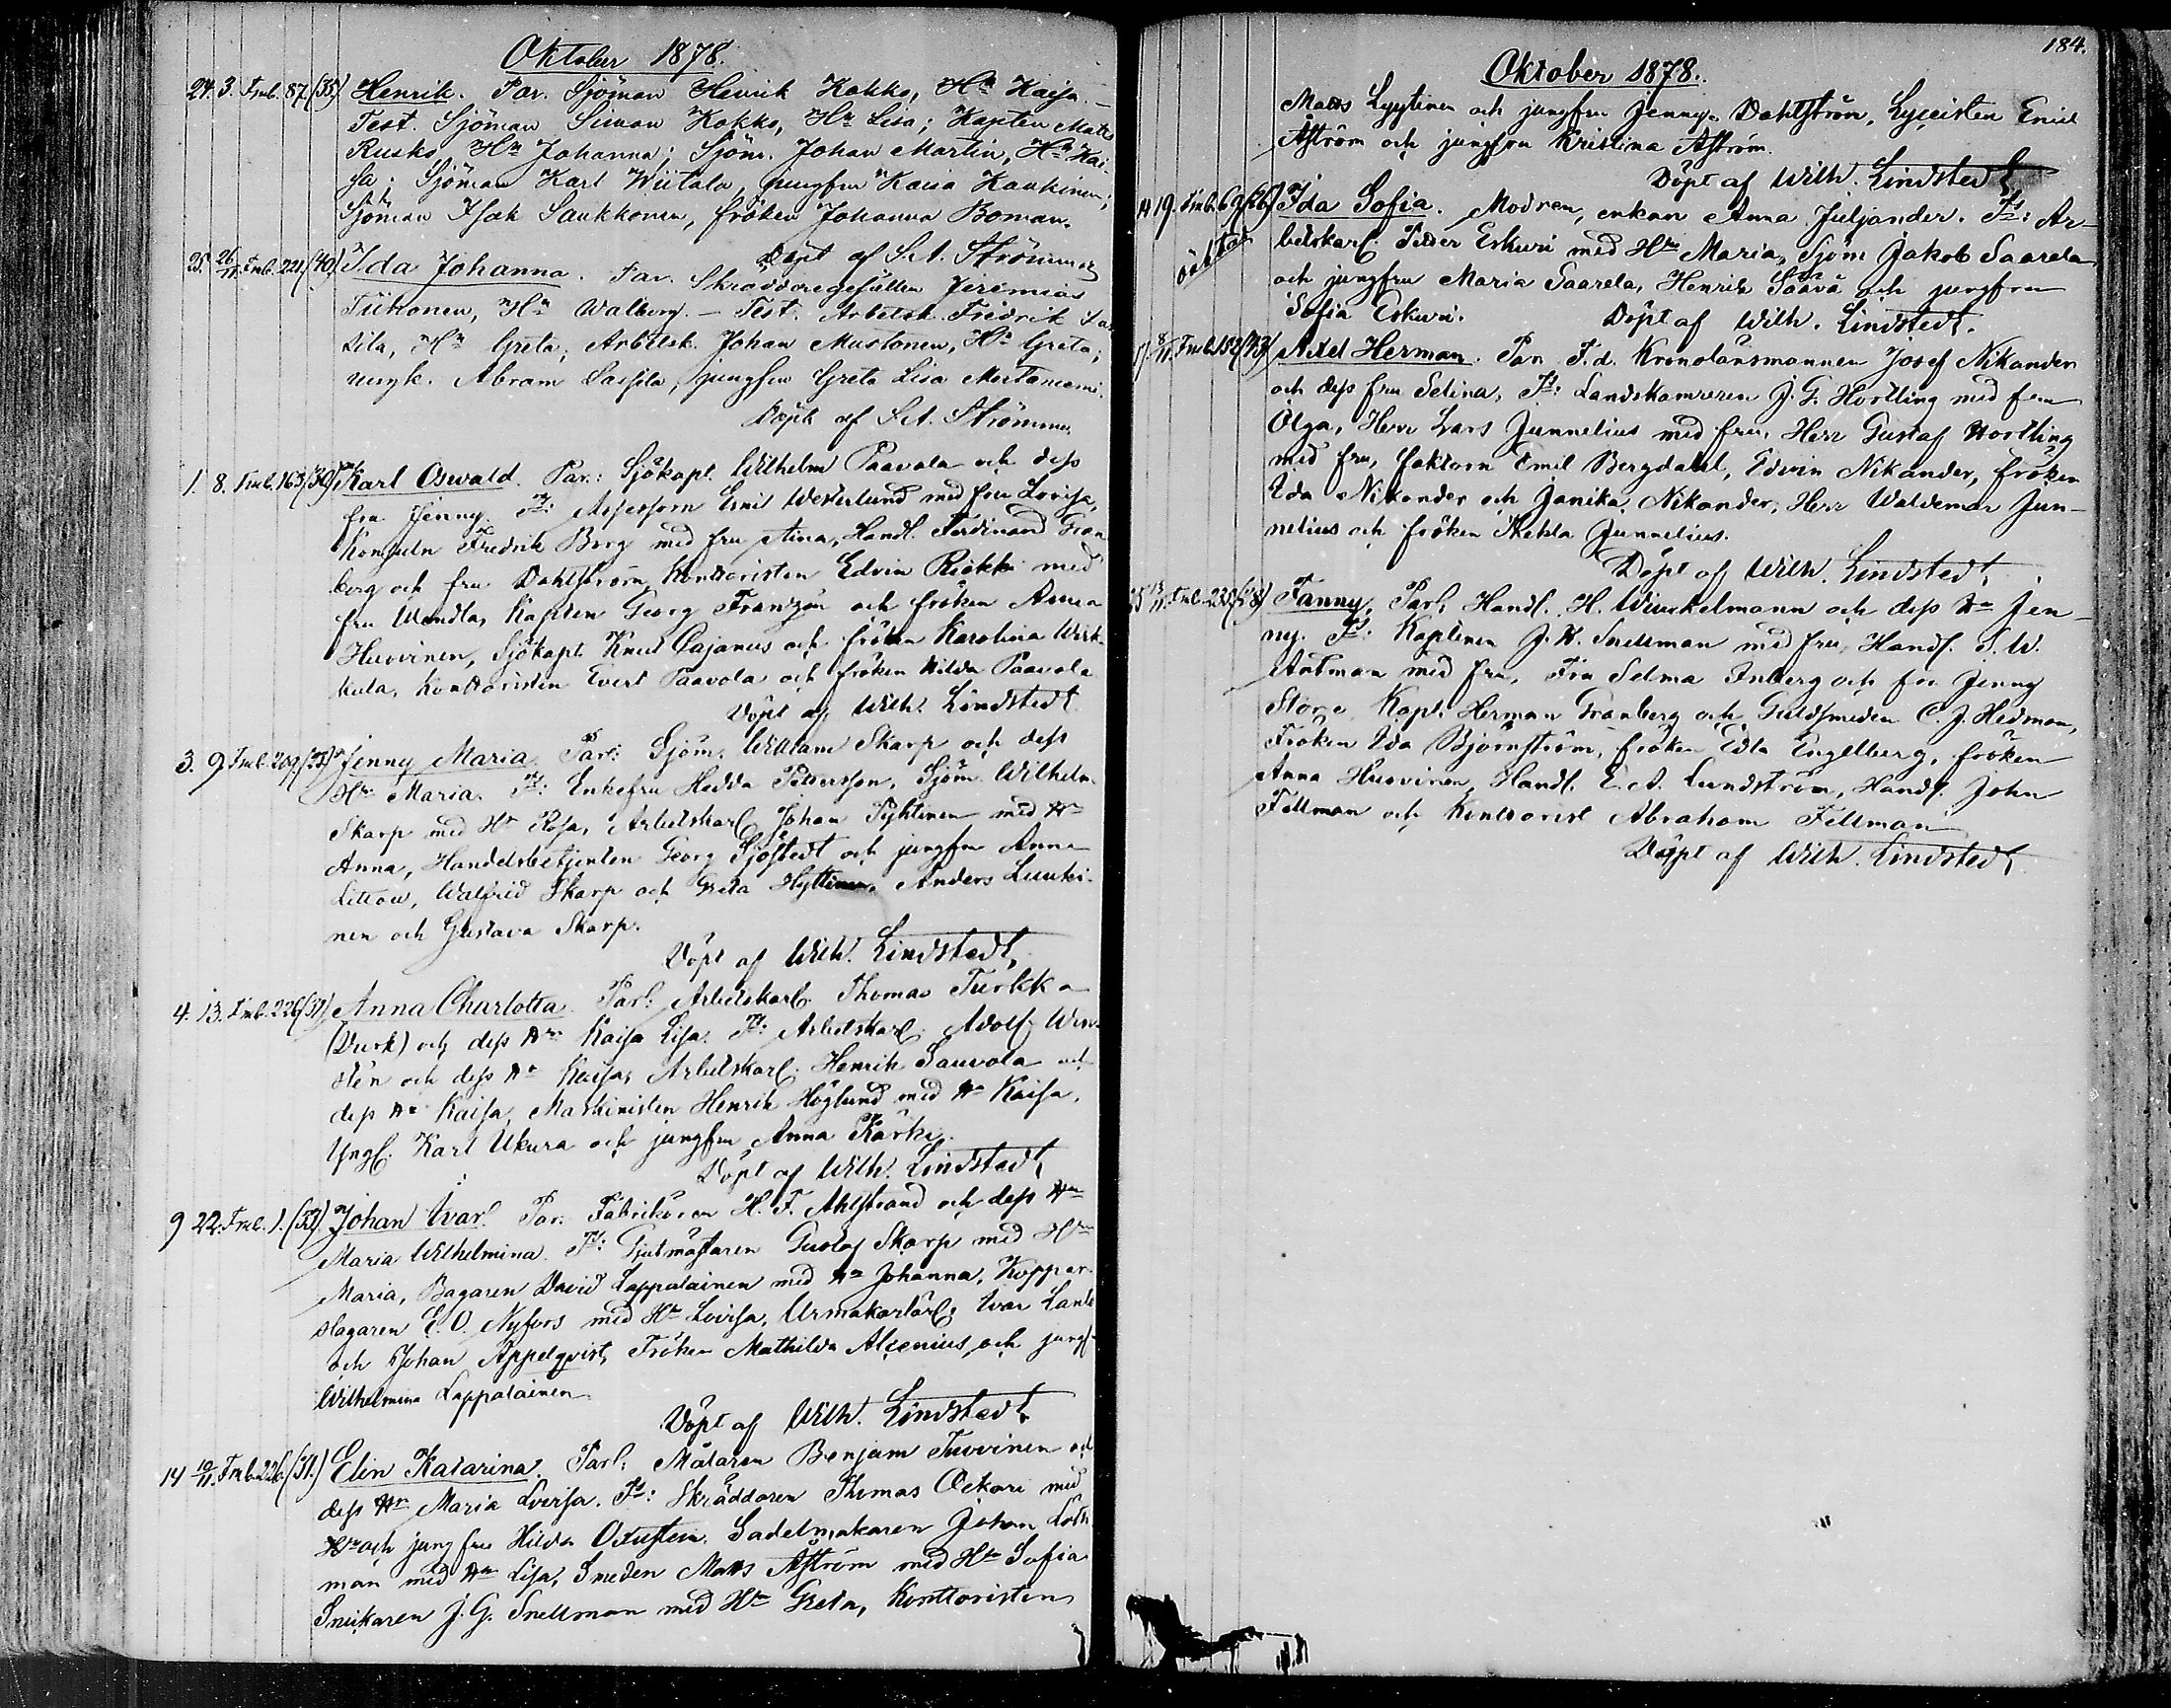 Oktober 1878.
24. 3. Fmb. 87. (35) Henrik. Par. Sjöman Henrik Kokko, Hu Kaisa. –
Test. Sjöman Simon Kokko, Hu Lisa; Kapten Matts
Rusko Hu Johanna; Sjöm. Johan Martin, Hu Kai-
sa; Sjöman Karl Wiitala, jungfru Kaisa Kaukinen;
Sjöman Isak Saukkonen, fröken Johanna Boman.
Döpt af S.A. Strömmer
25. 26/11. Fmb. 221. (40) Ida Johanna. Par. Skräddaregesällen Jeremias
Tiihonen, Hu Walborg. – Test. Arbetsk. Fredrik
sila, Hu Greta, Arbetsk. Johan Mustonen, Hu Greta;
yngk. Abram Sassila, jungfru Greta Lisa
Döpt af S.A. Strömmer
1. 8. Fmb. 163. (30) Karl Oswald. Par.: Sjökapt. Wilhelm Paavola och dess
fru Jenny. Ts: Assessorn Emil Westerlund med fru Lovisa,
Konsuln Fredrik Borg med fru Aina, Handl. Ferdinand Gran-
berg och fru Dahlström, Kontoristen Edvin Riekki med
fru Wendla, Kapten Georg Franzén och fröken Anna
Huovinen, Sjökapt. Knut Cajanus och fröken Karolina Wirk-
kula, Kontoristen Evert Paavola och fröken Hilda Paavola
Döpt af Wilh. Lindstedt
3. 9. Fmb. 209. (23) Jenny Maria. Par: Sjöm. William Skarp och dess
Hu Maria. Ts: Enkefru Hedda Pettersson, Sjöm. Wilhelm
Skarp med Hu Rosa, Arbetskarl Johan Pyhtinen med Hu
Anna, Handelsbetjenten Georg Sjöstedt och jungfru Anna
Littow, Walfrid Skarp och Greta Hyttinen, Anders Luuki-
nen och Gustava Skarp.
Döpt af Wilh. Lindstedt
4. 13. Fmb. 226 (37) Anna Charlotta. Par: Arbetskarl. Thomas Turkka
(Durk) och dess Hu Kaisa Lisa. Ts: Arbetskarl. Adolf
stén och dess Hu Kaisa, Arbetskarl. Henrik Sauvola och
dess Hu Kaisa, Maskinisten Henrik Höglund med Hu Kaisa,
Yngl. Karl Ukura och jungfru Anna Kärki.
Döpt af Wilh. Lindstedt
9 22. Fmb. 1. (33) Johan Ivar. Par: Fabrikören H. F. Ahlstrand och dess Hu
Maria Wilhelmina. Ts: Gjutmästaren Gustaf Skarp med Hu
Maria, Bagaren David Lappalainen med Hu Johanna, Koppar-
slagaren E. O. Nyfors med Hu Lovisa, Urmakarlärl. Ivar Lantz
och Johan Appelqvist, Fröken Mathilda Alcenius och jungf.
Wilhelmina Lappalainen
Döpt af Wilh. Lindstedt
14 10/11. Fmb. 226. (31.) Elin Katarina. Par: Målaren Benjam Tuovinen och
dess Hu Maria Lovisa. Ts: Skräddaren Thomas Oekari med
Hu och jungfru Hilda Sadelmakaren Johan
man med Hu Lisa, Smeden Matts Åström med Hu Sofia
Snickaren J. G. Snellman med Hu Greta, Kontoristen
184.
Oktober 1878.
Matts Lyytinen och jungfru Jenny Dahlström, Lyceisten Emil
Åström och jungfru Kristina Åström.
Döpt af Wilh. Lindstedt
14 19. Fmb. 62 (26) Ida Sofia. Modren, enkan Anna Juljander. Ts: Ar-
oäkta
betskarl. Petter Eskuri med Hu Maria, Sjöm Jakob Saarela
och jungfru Maria Saarela, Henrik Säävä och jungfru
Sofia Eskuri. Döpt af Wilh. Lindstedt.
17. 8/11. Fmb. 152 (23) Axel Herman. Par T. d. Kronolänsmannen Josef Nikander
och dess fru Selina, Ts: Landskamreren J. F. Hortling med fru
Olga, Herr Lars Junnelius med fru, Herr Gustaf Hortling
med fru, faktorn Emil Bergdahl, Edvin Nikander, fröken
Ida Nikander och Janika Nikander, Herr Waldemar Jun-
nelius och fröken Hekla Junnelius.
Döpt af Wilh. Lindstedt.
25 /11. Fmb. 220 (28) Fanny. Par: Handl. H. Winckelmann och dess Hu Jen-
ny. Ts: Kaptenen J. W. Snellman med fru, Handl. S. W.
Antman med fru, Fru Selma Inberg och fru Jenny
Store, Kapt. Herman Granberg och Guldsmeden C. J. Hedman,
Fröken Ida Björnström, fröken Edla Engelberg, fröken
Anna Huovinen, Handl. E. A. Lundström, Handl. John
Fellman och Kontorist Abraham Fellman
Döpt af Wilh. Lindstedt